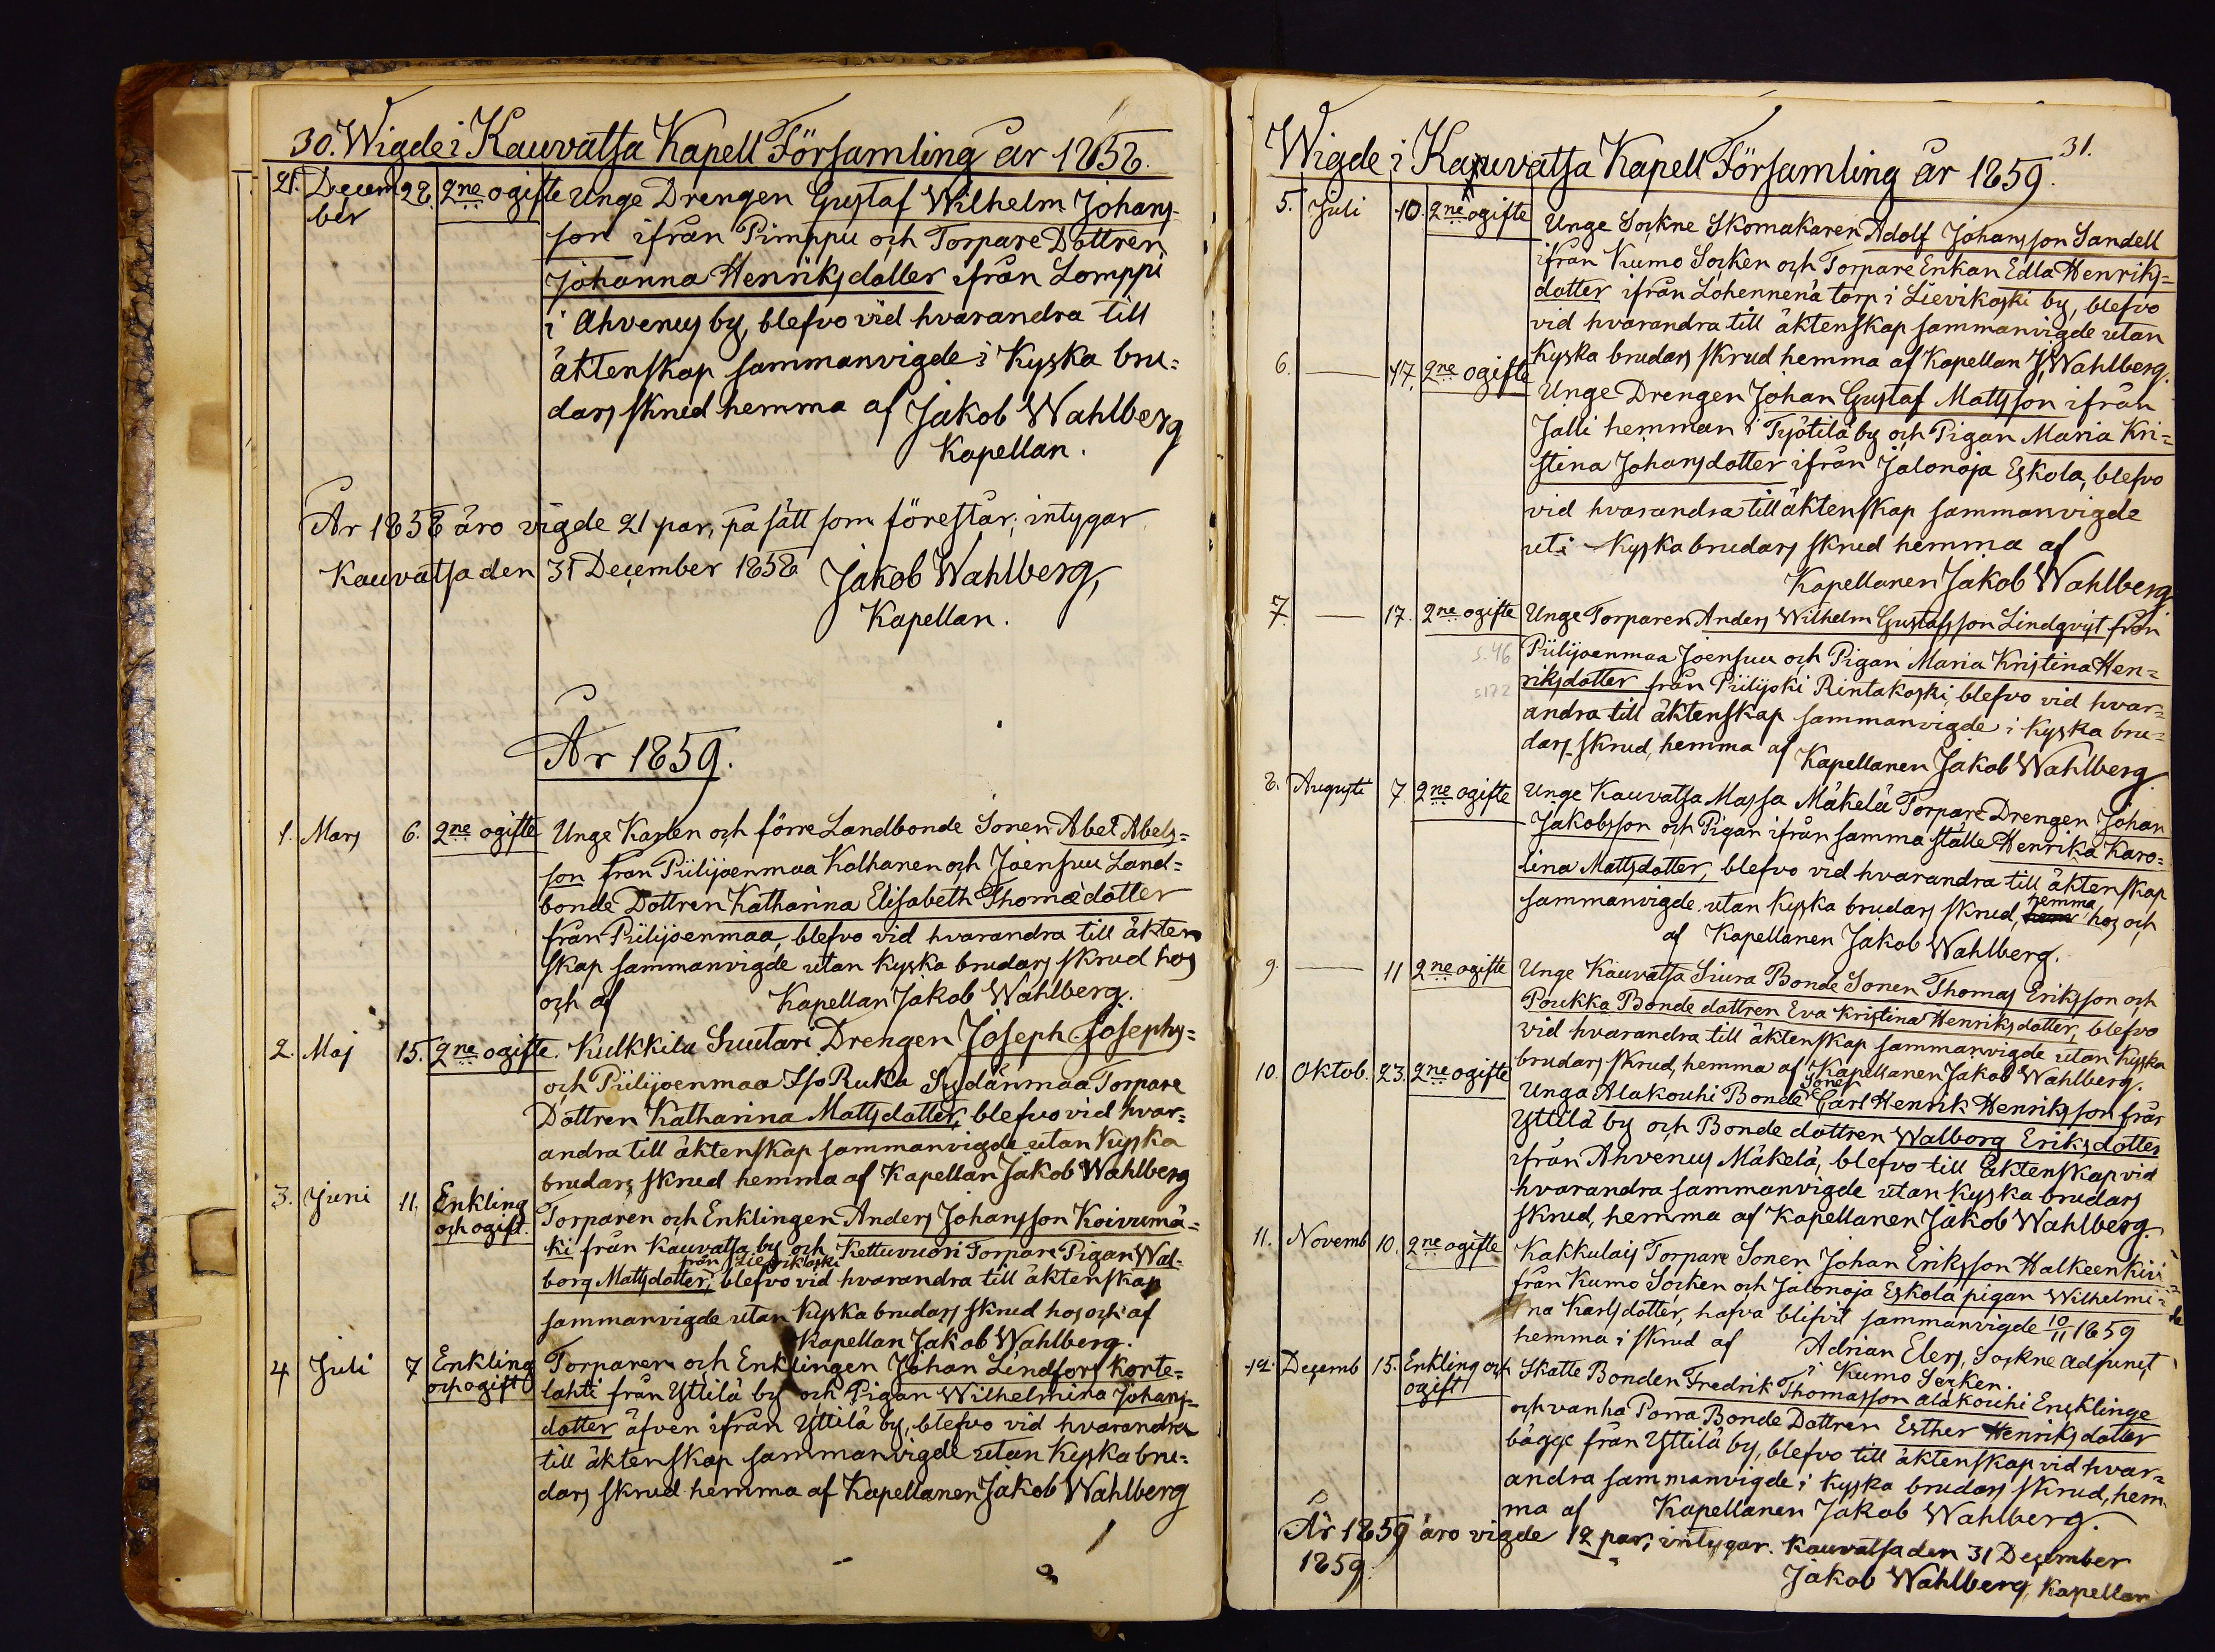 30. Wigde i Kauvatsa Kapell Församling år 1858.
21. Decem 28. 2ne ogifte Unge Drengen Gustaf Wilhelm Johans-
ber
son ifrån Pimppu och Torpare Dottren
Johanna Henriksdotter ifrån Lomppi
i Ahvenus by, blefvo vid hvarandra till
äktenskap sammanvigde i Kyska bru=
dars skrud hemma af Jakob Wahlberg
Kapellan.
År 1858 äro vigde 21 par, på sätt som förestår; intygar
Kauvatsa den 31 December 1858 Jakob Wahlberg,
Kapellan.
År 1859.
1. Mars 6. 2ne ogifte Unge Karlen och förre Landbonde Sonen Abel Abels=
son från Piilijoenmaa Kalhanen och Joensuu Land=
bonde Dottren Katharina Elisabeth Thomædotter
från Piilijoenmaa, blefvo vid hvarandra till äkten
skap sammanvigde utan Kyska brudars skrud hos
och af Kapellan Jakob Wahlberg.
2. Maj 15. 2ne ogifte. Kulkkila Suutari Drengen Joseph Josephs=
och Piilijoenmaa Iso Ruka Sydänmaa Torpare
Dottren Katharina Mattsdotter, blefvo vid hvar=
andra till äktenskap sammanvigde utan Kyska
brudars skrud hemma af Kapellan Jakob Wahlberg
3. Juni 11. Enkling Torparen och Enklingen Anders Johansson Koivumä=
och ogift.
ki från Kauvatsa by och Kettuvuori Torpare Pigan Wal-
från Lievikoski
borg Mattsdotter, blefvo vid hvarandra till äktenskap
sammanvigde utan Kyska brudars skrud hos och af
Kapellan Jakob Wahlberg.
4 Juli 7 Enkling Torparen och Enklingen Johan Lindfors Korte=
och ogift
lahti från Yttilä by och Pigan Wilhelmina Johans=
dotter äfven ifrån Yttilä by, blefvo vid hvarandra
till äktenskap sammanvigde utan Kyska bru=
dars skrud hemma af Kapellanen Jakob Wahlberg
31.
Wigde i Kauvatsa Kapell Församling år 1859.
5. Juli 10. 2ne ogifte Unge Sockne Skomakaren Adolf Johansson Sandell
ifrån Kumo Socken och Torpare Enkan Edla Henriks=
dotter ifrån Lohennenä torp i Lievikoski by, blefvo
vid hvarandra till äktenskap sammanvigde utan
Kyska brudars skrud hemma af Kapellan J. Wahlberg.
6. — 17. 2ne ogifte Unge Drengen Johan Gustaf Mattsson ifrån
Jalli hemman i Työtilä by och Pigan Maria Kri=
stina Johansdotter ifrån Jalonoja Eskola, blefvo
vid hvarandra till äktenskap sammanvigde
uti Kyska brudars skrud hemma af
Kapellanen Jakob Wahlberg.
7. — 17. 2ne ogifte Unge Torparen Anders Wilhelm Gustafsson Lindqvist från
s. 46 Piilijoenmaa Joensuu och Pigan Maria Kristina Hen=
s 172 riksdotter från Piilijoki Rintakoski, blefvo vid hvar=
andra till äktenskap sammanvigde i Kyska bru=
dars skrud, hemma af Kapellanen Jakob Wahlberg.
8. Augusti 7 2ne ogifte Unge Kauvatsa Massa Mäkelä Torpare Drengen Johan
Jakobsson och Pigan ifrån samma ställe Henrika Karo=
lina Mattsdotter, blefvo vid hvarandra till äktenskap
hemma
sammanvigde utan Kyska brudars skrud, hem hos och
af Kapellanen Jakob Wahlberg.
9. — 11 2ne ogifte Unge Kauvatsa Siura Bonde Sonen Thomas Eriksson och
Poukka Bonde dottren Eva Kristina Henriksdotter, blefvo
vid hvarandra till äktenskap sammanvigde utan Kyska
brudars skrud, hemma af Kapellanen Jakob Wahlberg.
Sonen
10. Oktob. 23. 2ne ogifte Unga Alakouhi Bonde Carl Henrik Henriksson från
Yttilä by och Bonde dottren Walborg Eriksdotter
ifrån Ahvenus Mäkelä, blefvo till Ecktenskap vid
hvarandra sammanvigde utan Kyska brudars
skrud, hemma af Kapellanen Jakob Wahlberg.
11. Novemb 10. 2ne ogifte Kakkulais Torpare Sonen Johan Eriksson Halkeenkivi
från Kumo Socken och Jalonoja Eskola pigan Wilhelmi=
na Karlsdotter, hafva blifvit sammanvigde 10/11 1859
hemma i skrud af Adrian Elers, Sockne Adjunct
i Kumo Socken.
12. Decemb 15. Enkling och Skatte Bonden Fredrik Thomasson Alakouhi Encklinge
ogift
och vanha Porra Bonde Dottren Esther Henriksdotter
bägge från Yttilä by, blefvo till äktenskap vid hvar=
andra sammanvigde i Kyska brudars skrud, hem
ma af Kapellanen Jakob Wahlberg.
År 1859 äro vigde 12 par, intygar. Kauvatsa den 31 December
1859. Jakob Wahlberg, Kapellan